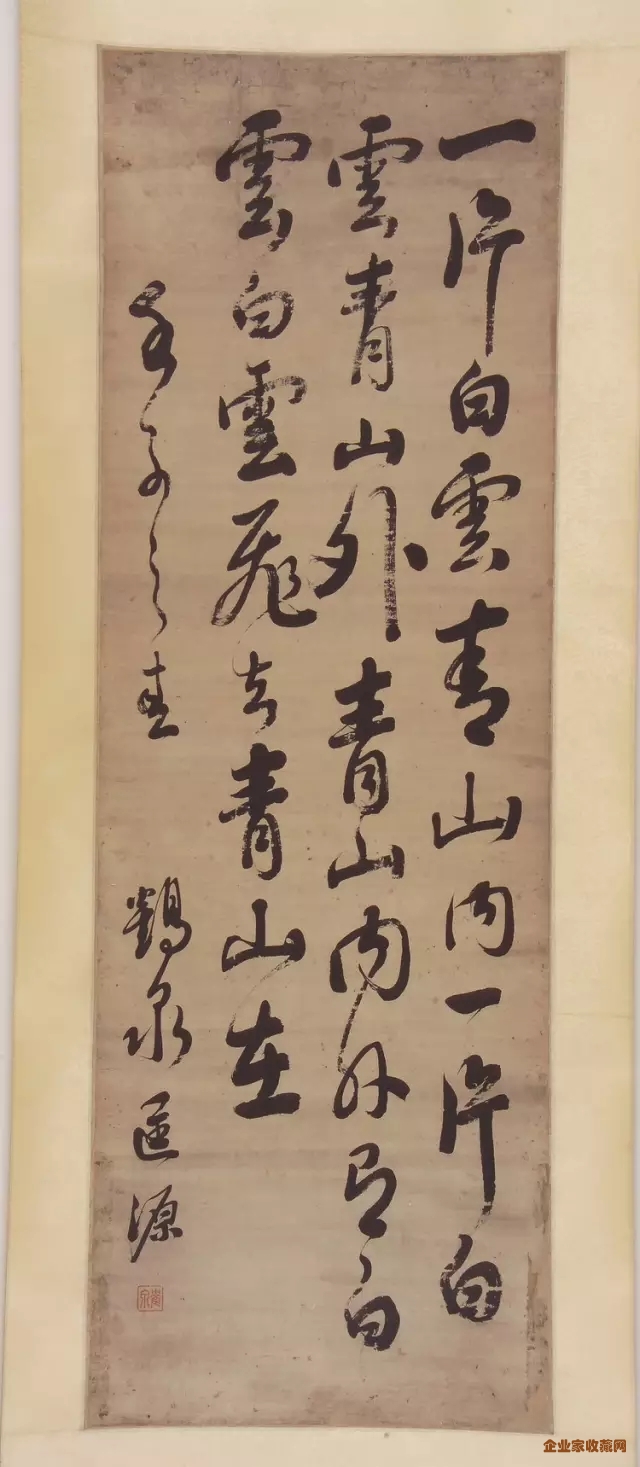 一片白雲青山内一片白
雲青山外青山内外有白
雲白雲飛去青山在
春
鶴泉匡源
企业家收藏网